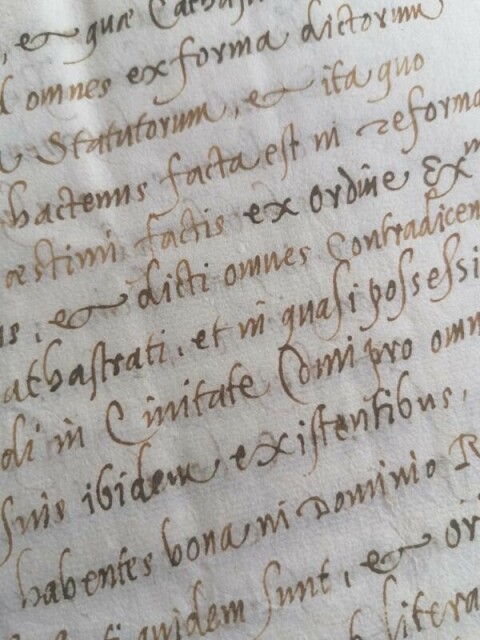 , & quæ Cathas
omnes ex forma dictorum
Statutorum, & ita quo
hactenus facta est in reforma
æstimi factis ex ordine Ex.m
is, & dicti omnes contradicen
athastrati, et in quasi possessi
oli in Civitate Comi pro omn
suis ibidem existentibus,
habentes bona in Dominio R
quidem sunt, & or
litera